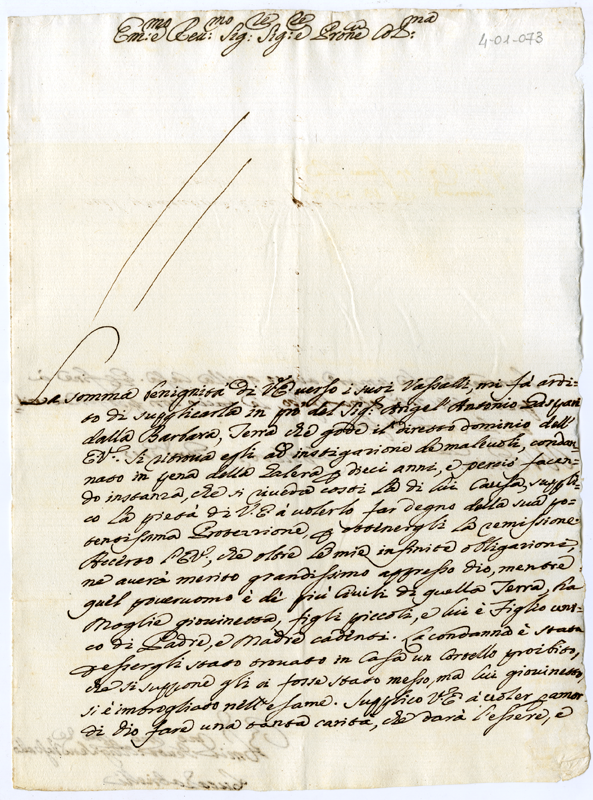 Em:mo e Reu:mo Sig:re Sig:re e Prone Col:ma
4-01-073
La somma benignità di VE verso i suoi Vassalli, mi fà ardi-
to di supplicarla in prò del Sig:r Angel' Antonio
dalla Barbara, Terra che gode il diretto dominio dell'
EV. Si ritrova egli ad instigazione de malevoli, condan-
nato in pena della Galera p dieci anni, e perciò facen-
do instanza, che si riveda costì la di lui Causa, suppli-
co la pietà di VE à volerlo far degno della sua po-
tentissima Protezzione, p ottenergli la remissione.
Accerto l'EV, che oltre le mie infinite obligazioni,
ne averà merito grandissimo appresso Dio, mentre
quel pover uomo è de più Civili di quella Terra, hà
Moglie giovinetta, figli piccoli, e lui è Figlio uni-
co di Padre, e Madre cadenti. La condanna è stata
p essergli stato trovato in Casa un Cortello proibito,
che si suppone gli vi fosse stato messo, mà lui giovinetto
si è imbrogliato nell'esame. Supplico VE à voler p amor
di Dio fare una tanta carità, che darà l'essere, e